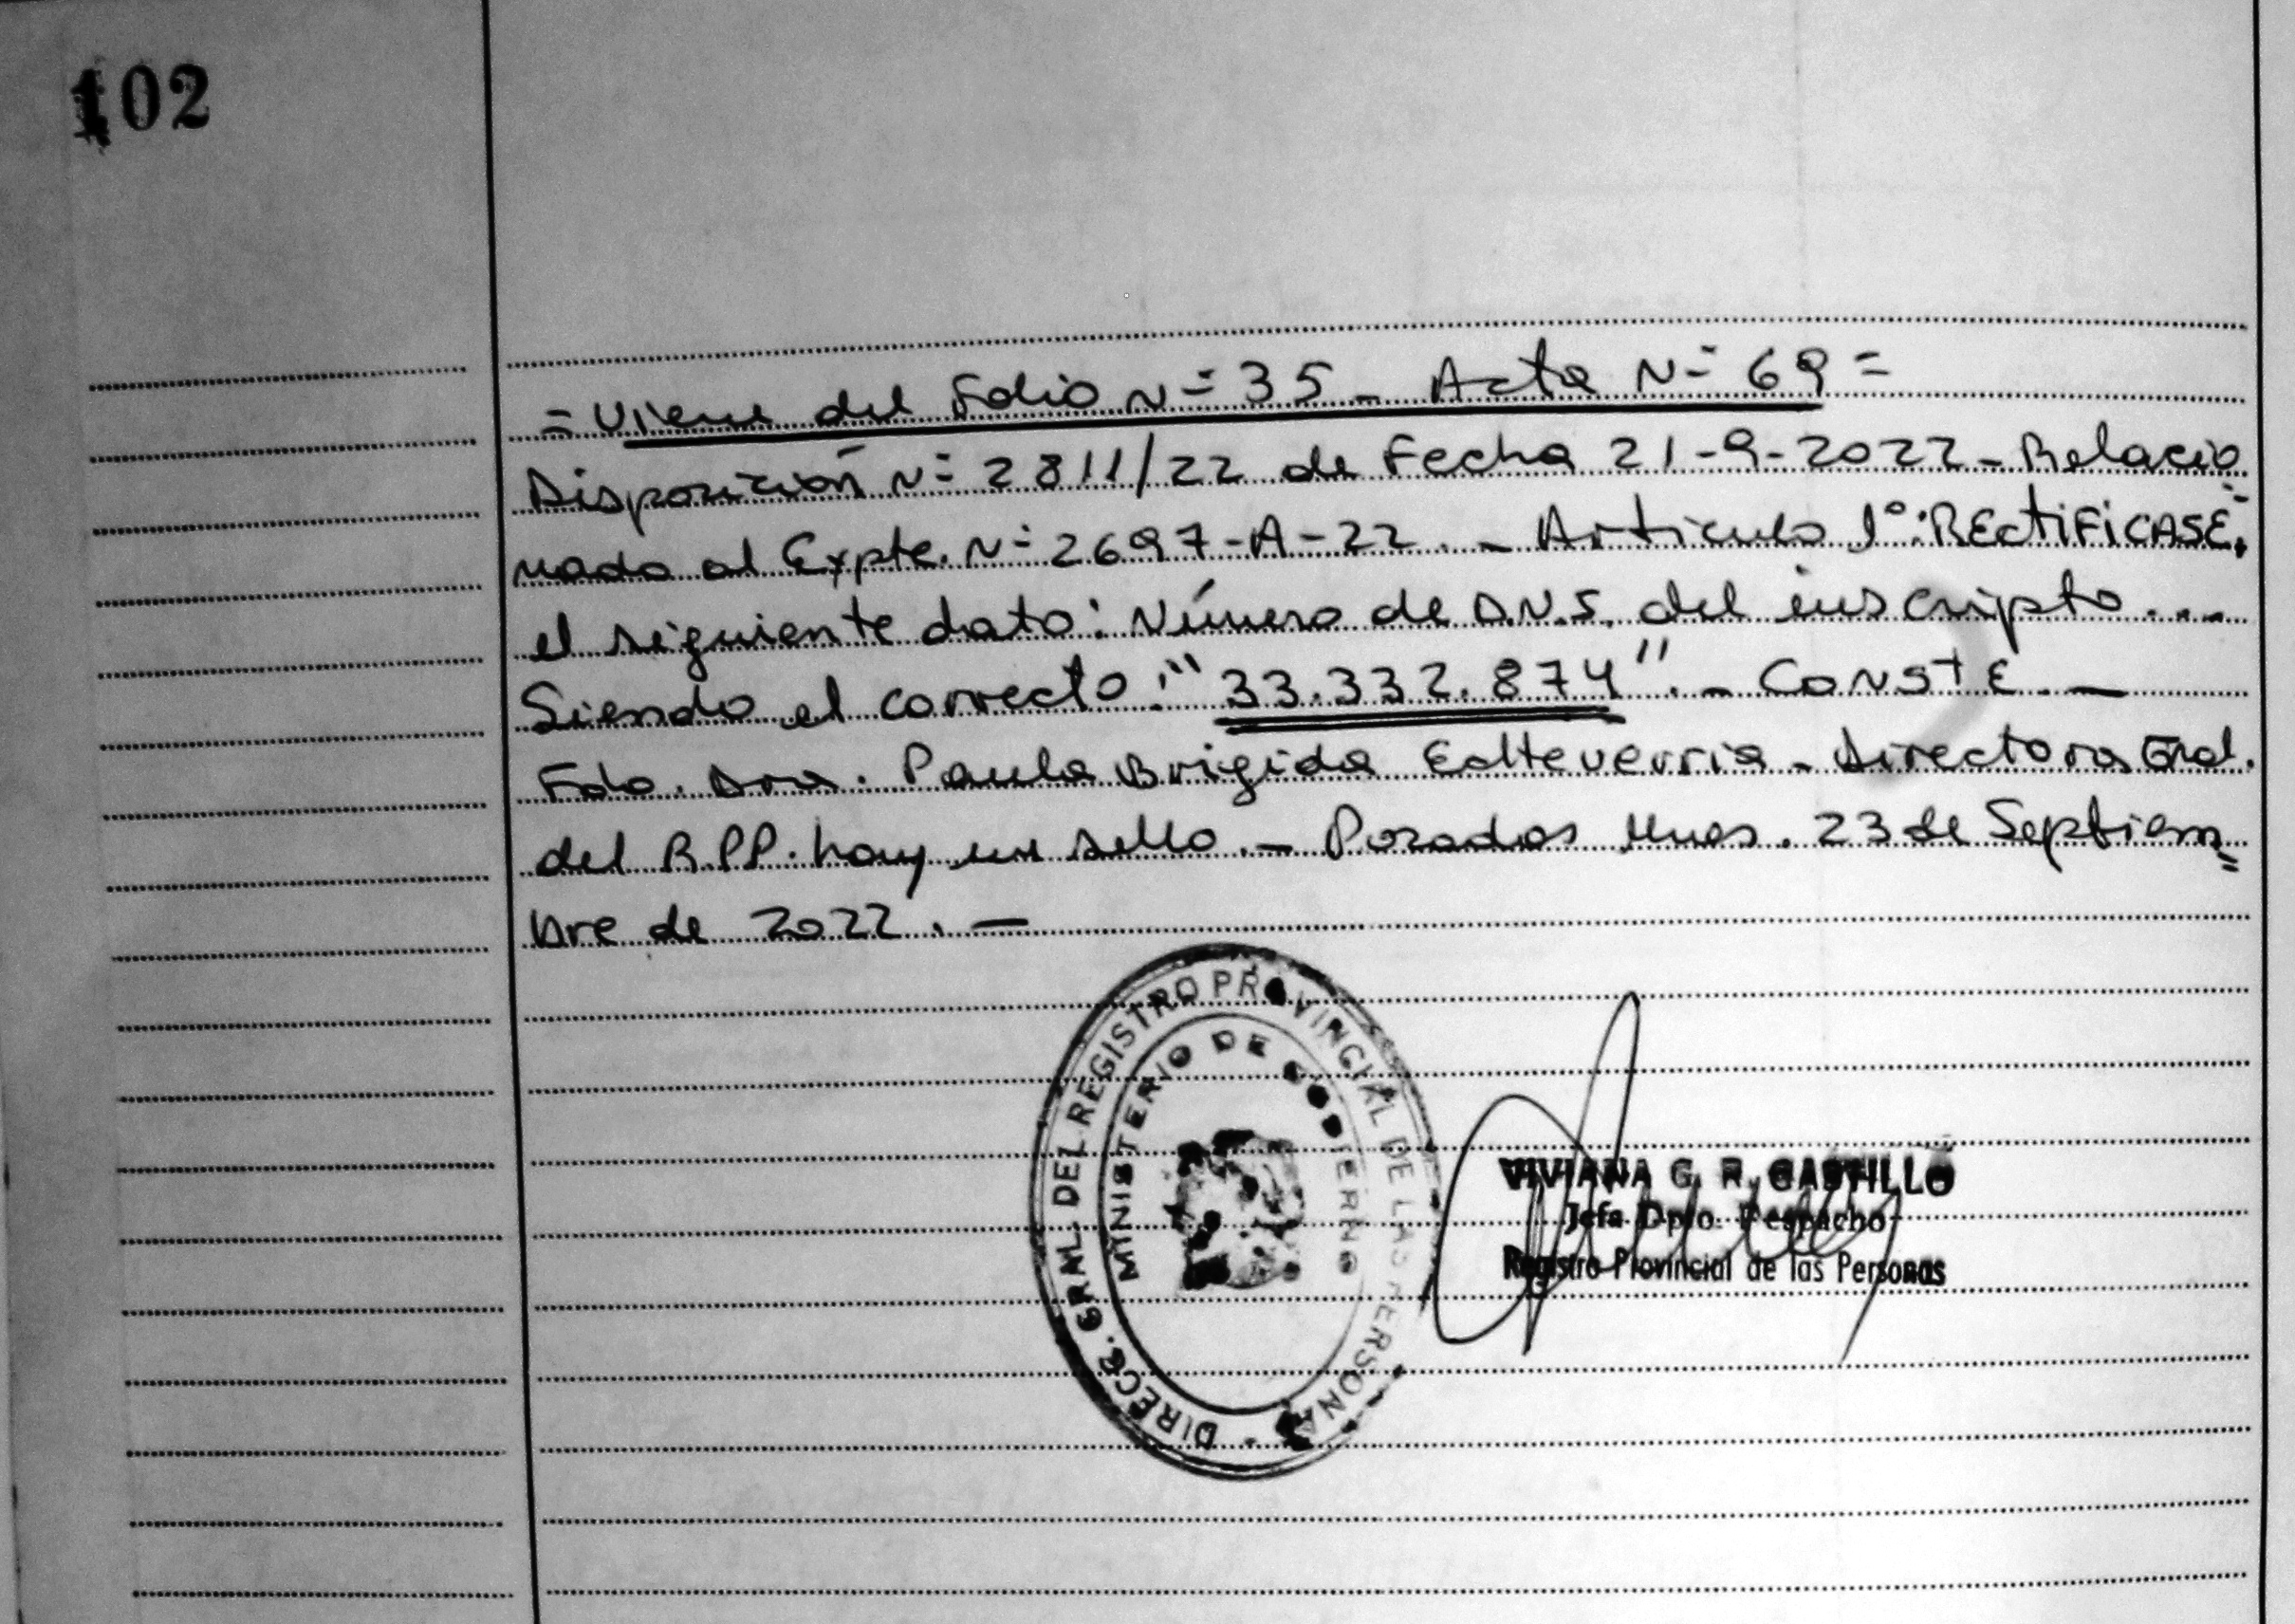 102
= Viene del Folio Nº 35 - Acta Nº 69 =
Disposición Nº 2811/22 de Fecha 21-9-2022 - Relacio
nado al Expte. Nº 2697-A-22. - Articulo 1º: RECTIFICASE;
el siguiente dato: Número de D.N.I. del inscripto...
Siendo el correcto: "33.332.874". - CONSTE. -
Fdo. Dra. Paula Brigida Echeverria - Directora Gral.
del R.P.P. hay un sello. - Posadas Mnes. 23 de Septiem=
bre de 2022. -
DIRECC. GRAL. DEL REGISTRO PROVINCIAL DE LAS PERSONAS
MINISTERIO DE GOBIERNO
VIVIANA G. R. CASTILLO
Jefa Dpto. Despacho
Registro Provincial de las Personas